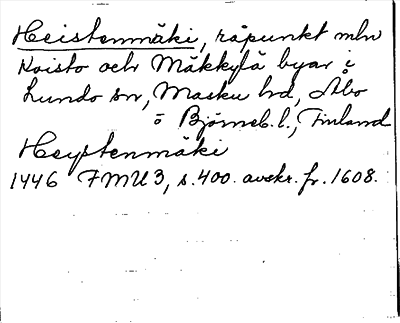 Heistenmäki, råpunkt mln
Koisto och Mäkkylä byar i
Lundo sn, Masku hd, Åbo
o Björneb. l., Finland
Heystenmäki
1446 FMU 3, s. 400. avskr. fr. 1608.